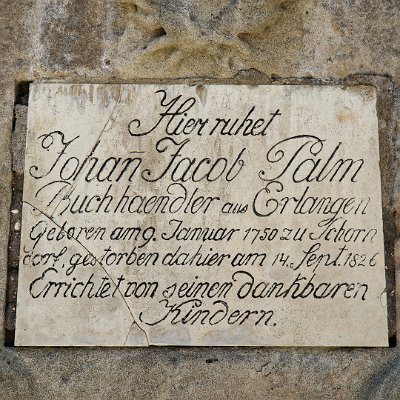 Hier ruhet
Johan̄ Jacob Palm
Buchhaendler aus Erlangen
Geboren am 9. Januar 1750 zu Schorn
dorf, gestorben dahier am 14. Sept. 1826
Errichtet von seinen dankbaren
Kindern.